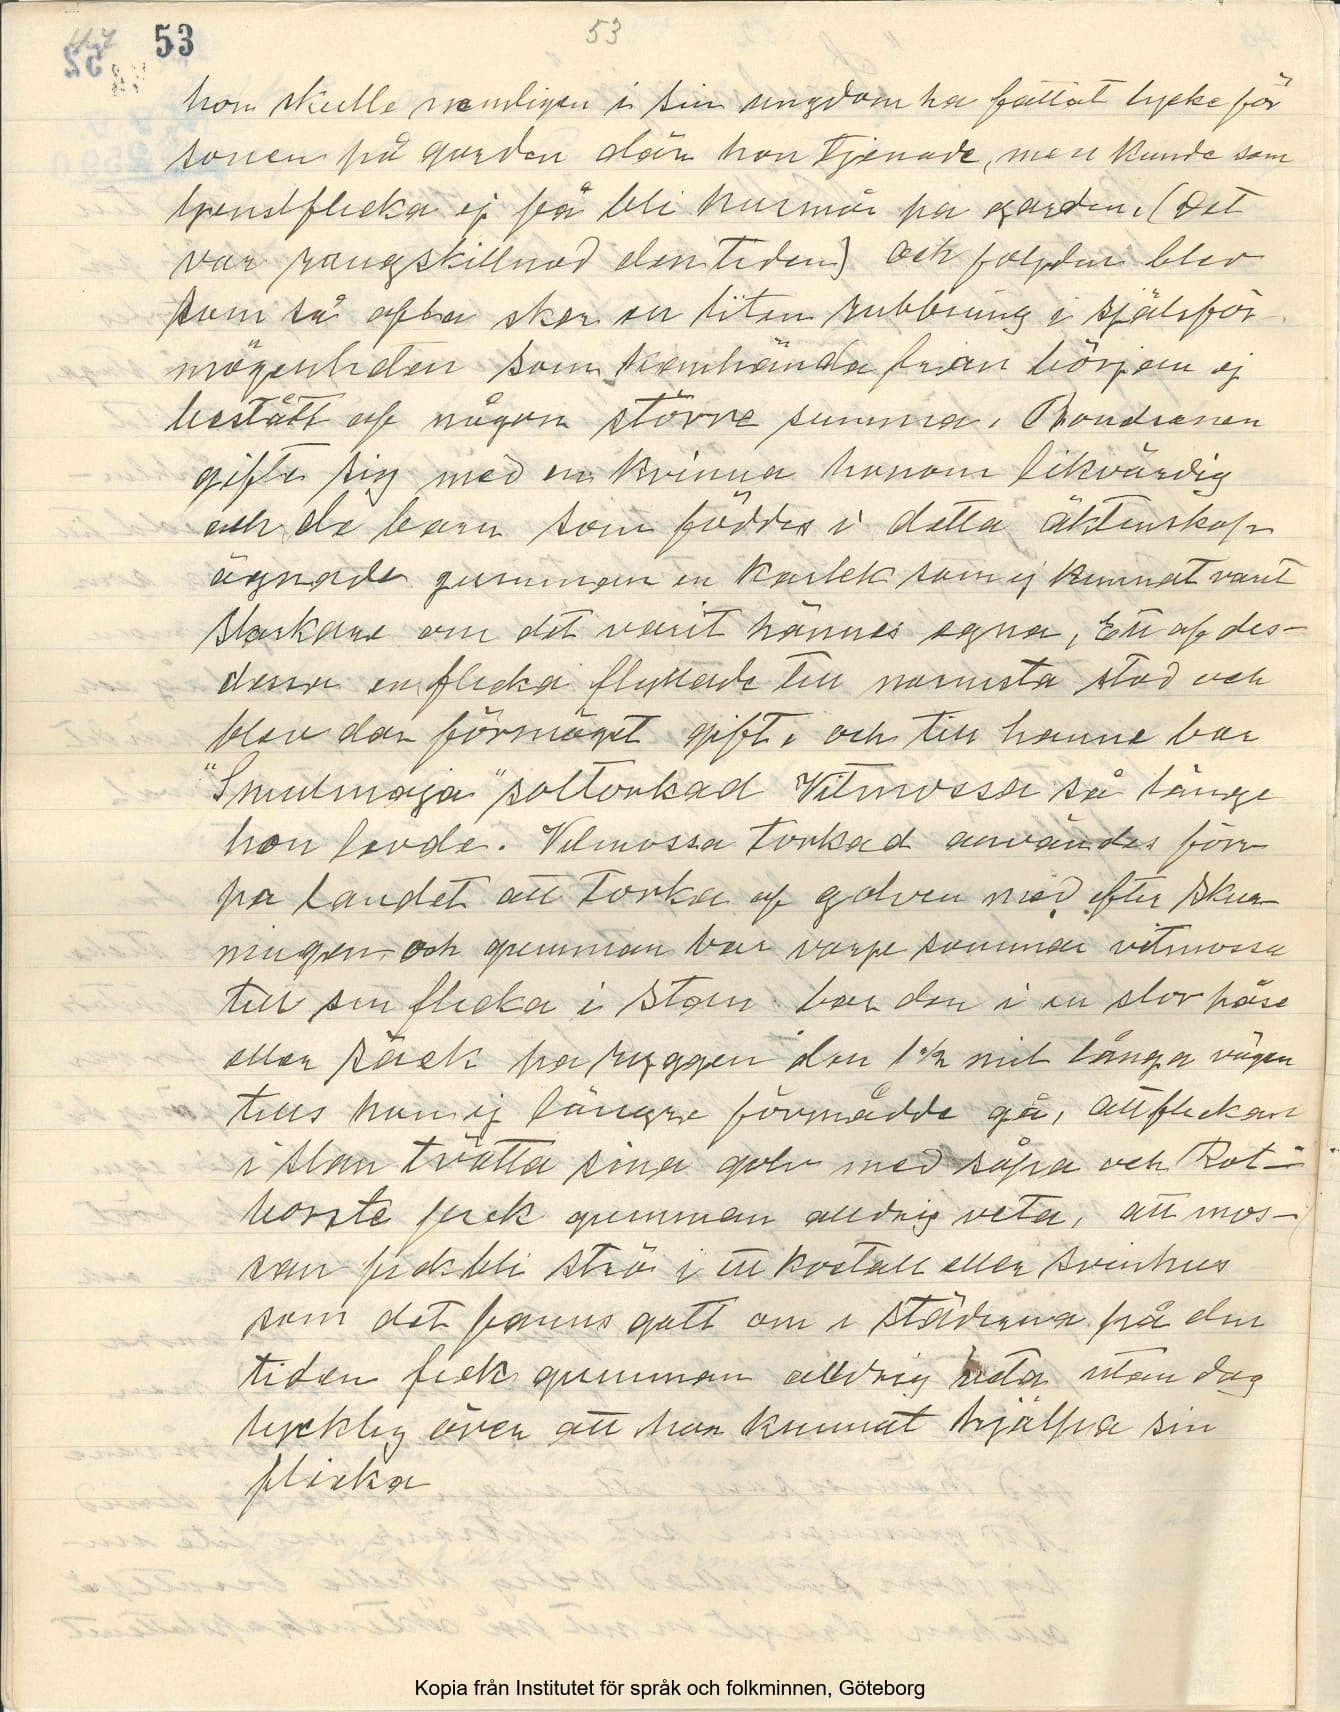 53
53
hon skulle nemligen i sin ungdom ha fattat tycke för
sonen på garden där hon tjenade, men kunde som
tjenstflicka ej få bli husmör pa garden. (Det
var rangskillnad den tiden) och foljden blev
som så ofta sker en liten rubbning i själsför-
mögenheten som kanhända från början ej
bestått af någon större summa. Bondsonen
gifte sig med en kvinna honom likvärdig
och de barn som föddes i detta äktenskap
ägnade gumman en karlek som ej kunnat varit
starkare om det varit hännes egna, Ett af des-
dessa en flicka flyttade till narmsta stad och
blev dar förmöget gift. och till hanne bar
"Smulmaja" soltorkad Vitmossa så länge
hon levde. Vitmossa torkad användes förr
pa landet att torka af golven med efter skur-
ningen och gumman bar varje sommar vitmossa
till sin flicka i stan bar den i en stor påse
eller säck pa ryggen den 1½ mil långa vägen
tills hon ej längre förmådde gå, att flickan
i stan tvätta sina golv med såpa och Rot-
borste fick gumman alldrig veta, att mos-
san fick bli strö i ett kostall eller svinhus
som det fanns gott om i städerna på den
tiden fick gumman alldrig veta utan dog
lycklig över att hon kunnat hjälpa sin
flicka
Kopia från Institutet för språk och folkminnen, Göteborg